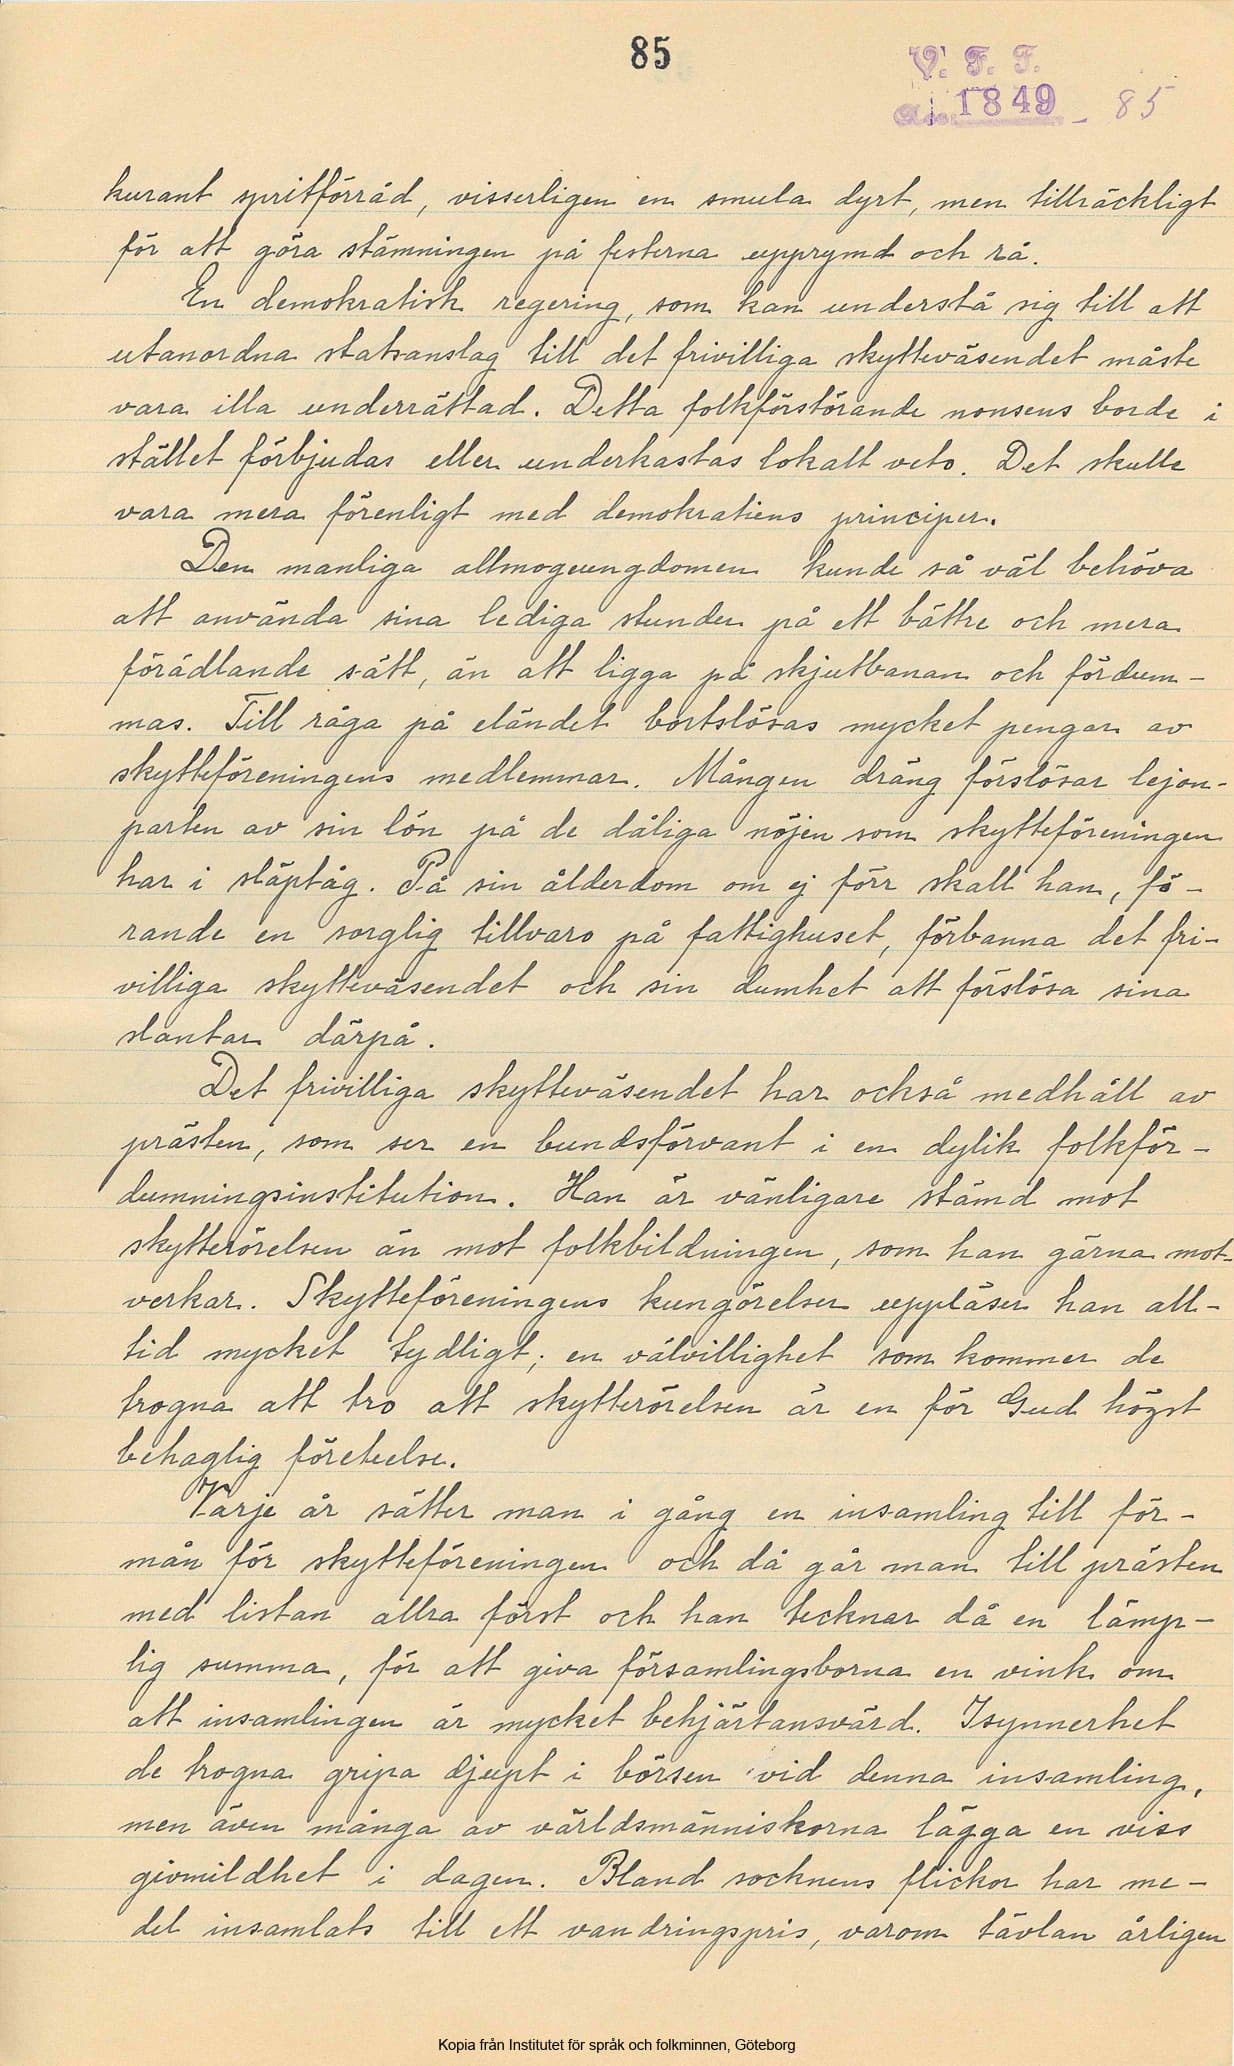 85
V. F. F.
1849 - 85
kurant spritförråd, visserligen en smula dyrt, men tillräckligt
för att göra stämningen på festerna upprymd och rå.
En demokratisk regering, som kan understå sig till att
utanordna statsanslag till det frivilliga skytteväsendet måste
vara illa underrättad. Detta folkförstörande nonsens borde i
stället förbjudas eller underkastas lokalt veto. Det skulle
vara mera förenligt med demokratiens principer.
Den manliga allmogeungdomen kunde så väl behöva
att använda sina lediga stunder på ett bättre och mera
förädlande sätt, än att ligga på skjutbanan och fördum-
mas. Till råga på eländet bortslösas mycket pengar av
skytteföreningens medlemmar. Mången dräng förslösar lejon-
parten av sin lön på de dåliga nöjen som skytteföreningen
har i släptåg. På sin ålderdom om ej förr skall han, fö-
rande en sorglig tillvaro på fattighuset, förbanna det fri-
villiga skytteväsendet och sin dumhet att förslösa sina
slantar därpå.
Det frivilliga skytteväsendet har också medhåll av
prästen, som ser en bundsförvant i en dylik folkför-
dumningsinstitution. Han är vänligare stämd mot
skytterörelsen än mot folkbildningen, som han gärna mot-
verkar. Skytteföreningens kungörelser uppläser han all-
tid mycket tydligt; en välvillighet som kommer de
trogna att tro att skytterörelsen är en för Gud högst
behaglig företeelse.
Varje år sätter man i gång en insamling till för-
mån för skytteföreningen och då går man till prästen
med listan allra först och han tecknar då en lämp-
lig summa, för att giva församlingsborna en vink om
att insamlingen är mycket behjärtansvärd. Isynnerhet
de trogna gripa djupt i börsen vid denna insamling,
men även många av världsmänniskorna lägga en viss
givmildhet i dagen. Bland socknens flickor har me-
del insamlats till ett vandringspris, varom tävlan årligen
Kopia från Institutet för språk och folkminnen, Göteborg